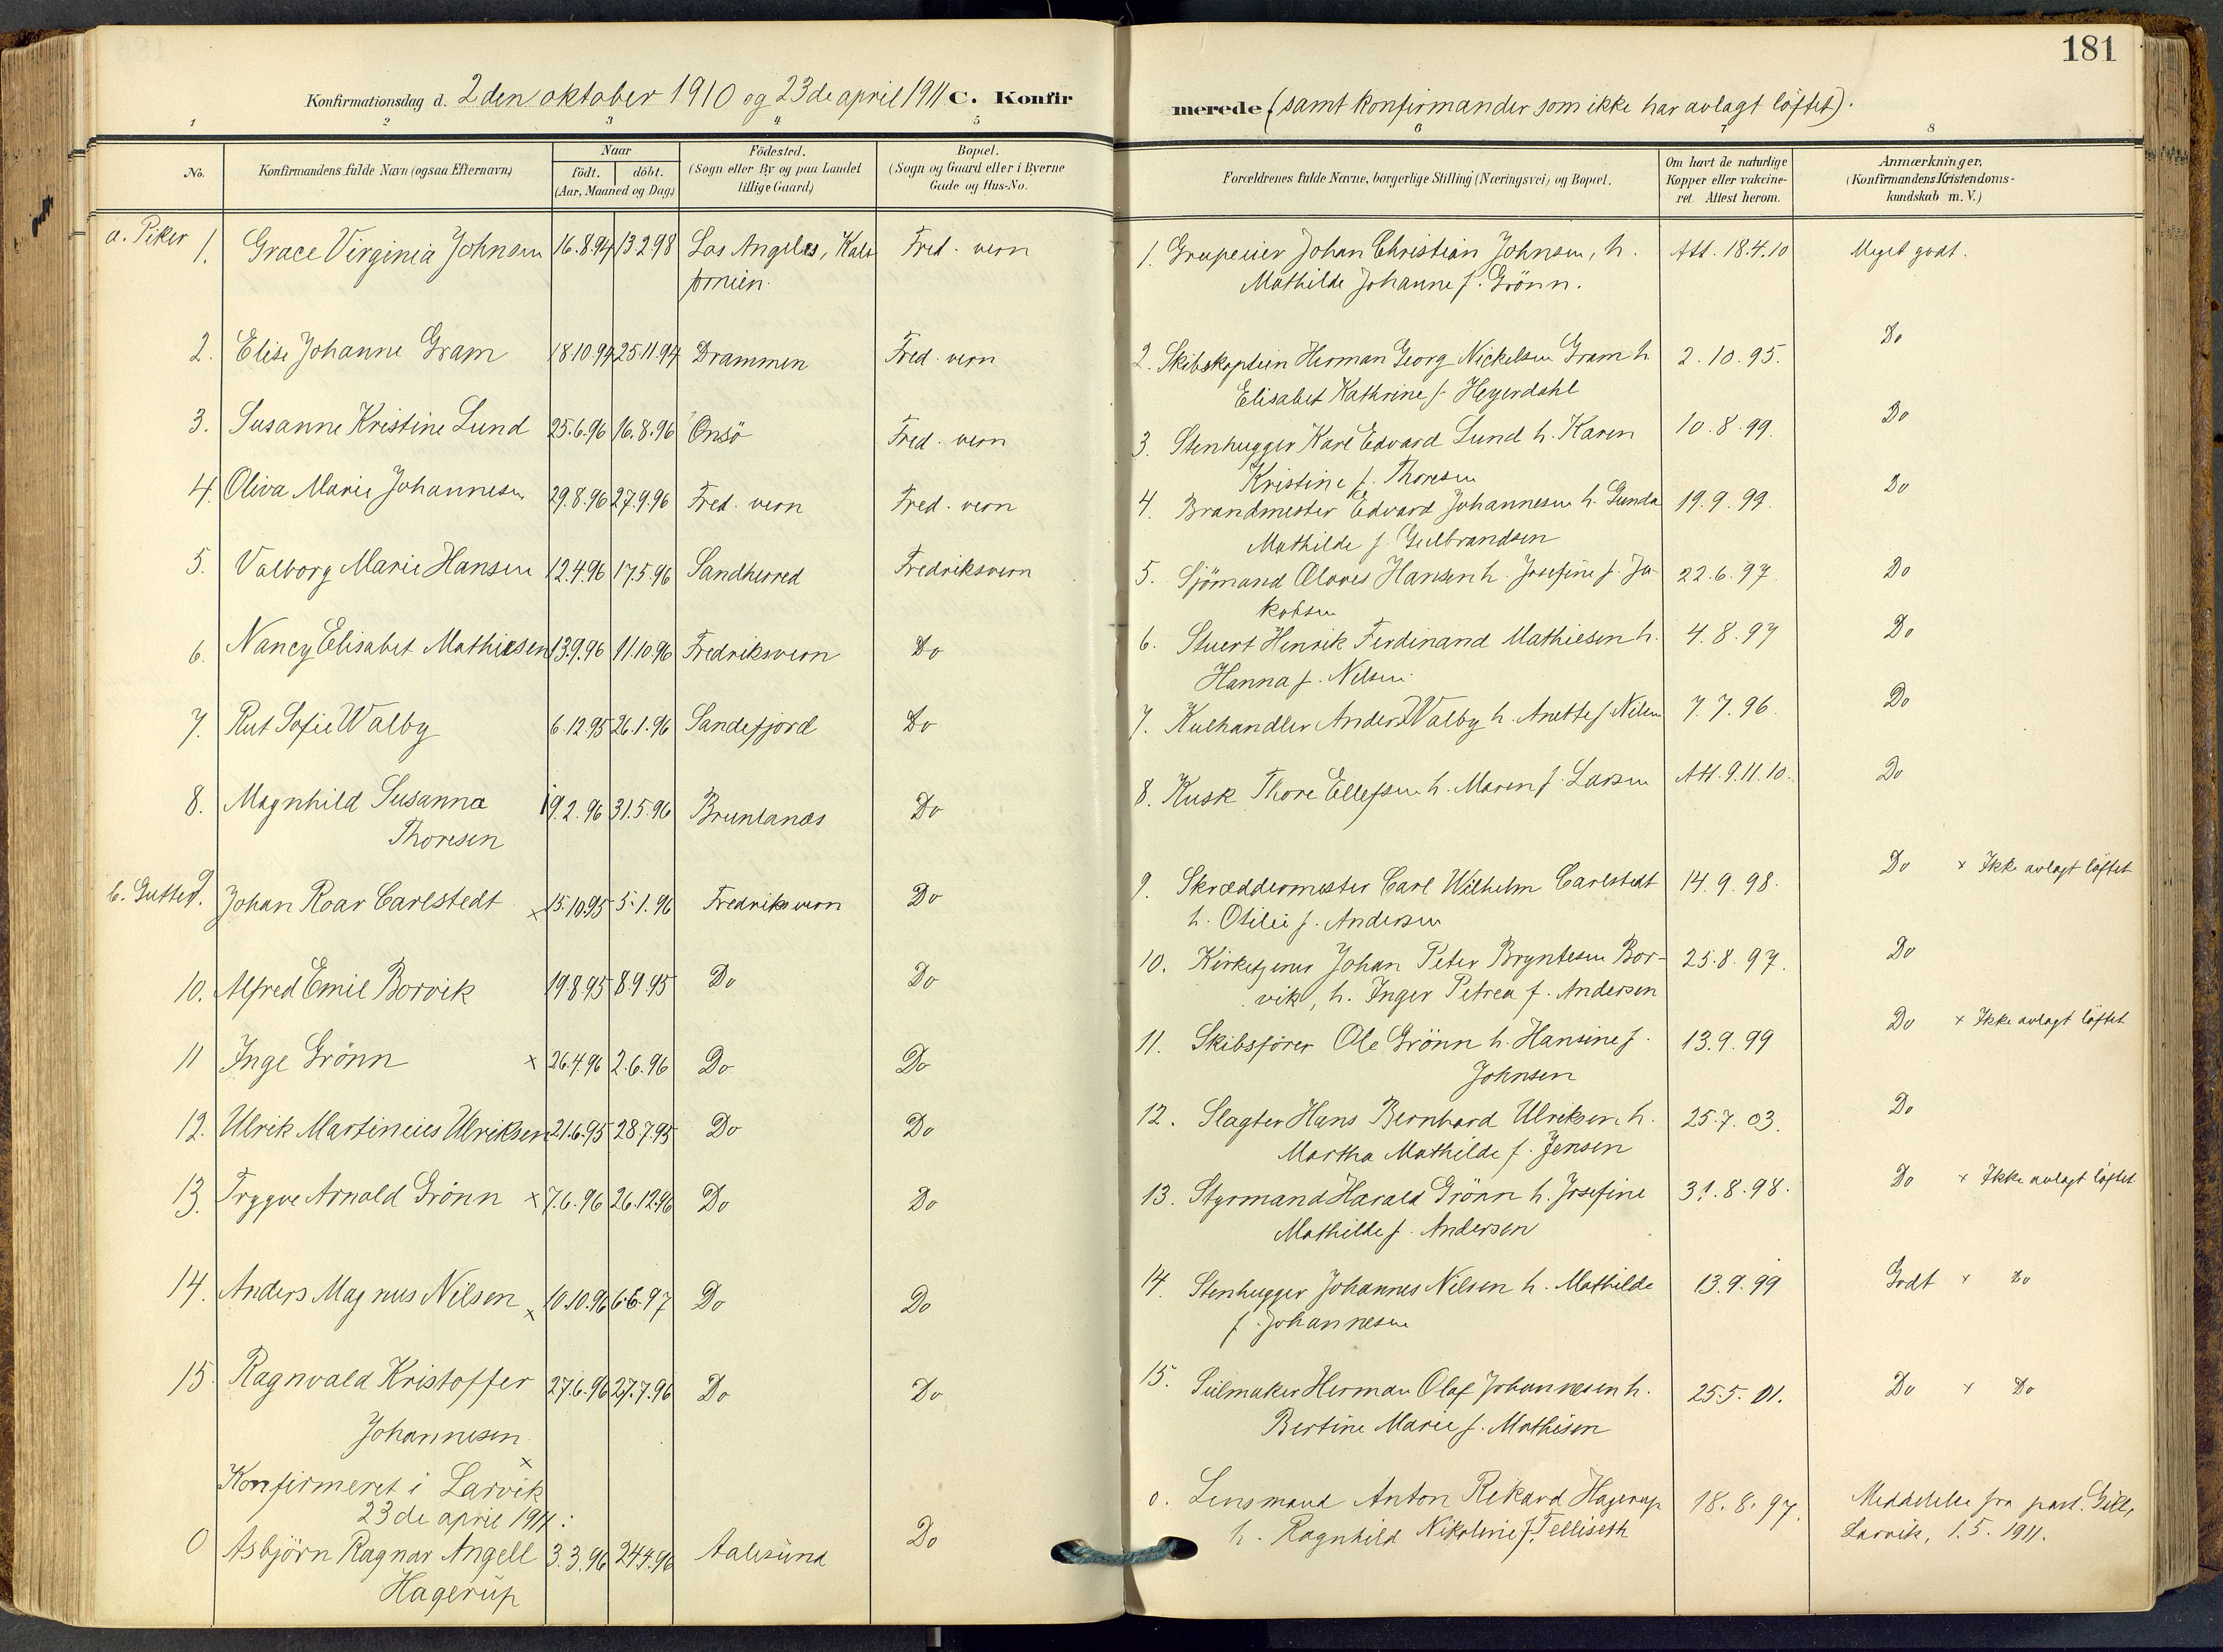 181
Konfirmationsdag d. 2den oktober 1910 og 23de april 1911 C. Konfir
merede (samt konfirmander som ikke har avlagt löftet).
1 2 3 4 5
6 7 8
No.
Konfirmandens fulde Navn (ogsaa Efternavn)
Naar
födt. döbt.
(Aar, Maaned og Dag)
Födested.
(Sogn eller By og paa Landet
tillige Gaard)
Bopæl.
(Sogn og Gaard eller i Byerne
Gade og Hus-No.
Forældrenes fulde Navne, borgerlige Stilling (Næringsvei) og Bopæl.
Om havt de naturlige
Kopper eller vakcine-
ret. Attest herom.
Anmærkninger.
(Konfirmandens Kristendoms-
kundskab m. V.)
a. Piker
1. Grace Virginia Johnsen 16.8.94 13.2.98 Los Angeles, Kali Fred. vern
fornien.
1. Johan Christian Johnsen, h. Att. 18.4.10 Meget godt.
Mathilde Johanne f. Grönn.
2. Elise Johanne Gram 18.10.94 25.11.94 Drammen Fred. vern
2. Skibskaptein Herman Georg Nickelsen Gram h. 2.10.95. Do
Elisabet Kathrine f. Heyerdahl
3. Susanne Kristine Lund 25.6.96 16.8.96 Onsö Fred. vern
3. Stenhugger Karl Edvard Lund h. Karen 10.8.99. Do
Kristine f. Thoresen
4. Oliva Marie Johannesen 29.8.96 27.9.96 Fred. vern Fred. vern
4. Brandmester Edvard Johannesen h. Gunda 19.9.99. Do
Mathilde f. Gulbrandsen
5. Valborg Marie Hansen 12.4.96 17.5.96 Sandherred Fredriksvern
5. Sjömand Hansen h. Josefine f. Ja- 22.6.97. Do
kobsen
6. Nancy Elisabet Mathiesen 13.9.96 11.10.96 Fredriksvern Do
6. Stuert Henrik Ferdinand Mathiesen h. 4.8.97 Do
Hanna f. Nilsen.
7. Rut Sofie Walby 6.12.95 26.1.96 Sandefjord Do
7. Kulhandler Anders Walby h. Anette f. Nilsen 7.7.96. Do
8. Magnhild Susanna 19.2.96 31.5.96 Brunlanæs Do
Thoresen
8. Kusk Thore Ellefsen h. Maren f. Larsen Att. 9.11.10. Do
b. Gutter
9. Johan Roar Carlstedt x 15.10.95 5.1.96 Fredriksvern Do
9. Skræddermester Carl Wilhelm Carlstedt 14.9.98. Do x Ikke avlagt löftet
h. Otilie f. Andersen
10. Alfred Emil Borvik 19.8.95 8.9.95 Do Do
10. Kirketjener Johan Peter Bryntesen Bor- 25.8.97. Do
vik, h. Inger Petrea f. Andersen
11 Inge Grönn x 26.4.96 2.6.96 Do Do
11. Skibsförer Ole Grönn h. Hansine f. 13.9.99 Do x Ikke avlagt löftet
Johnsen
12. Ulrik Martinius Ulriksen 21.6.95 28.7.95 Do Do
12. Slagter Hans Bernhard Ulriksen h. 25.7.03. Do
Martha Mathilde f. Jensen
13. Trygve Arnold Grönn x 7.6.96 26.12.96 Do Do
13. Styrmand Harald Grönn h. Josefine 31.8.98. Do x Ikke avlagt löftet
Mathilde f. Andersen
14. Anders Magnus Nilsen x 10.10.96 6.6.97 Do Do
14. Stenhugger Johannes Nilsen h. Mathilde 13.9.99 Godt x Do
f. Johannesen
15. Ragnvald Kristoffer 27.6.96 27.7.96 Do Do
Johannesen x
15. Seilmaker Herman Olaf Johannesen h. 25.5.01. Do x Do
Bertine Marie f. Mathisen
Konfirmeret i Larvik
23de april 1911:
0 Asbjörn Ragnar Angell 3.3.96 24.4.96 Aalesund Do
Hagerup
0. Lensmand Anton Rikard Hagerup 18.8.97. Meddelelse fra past. Gill,
h. Ragnhild Nikoline f. Telliseth Larvik, 1.5.1911.